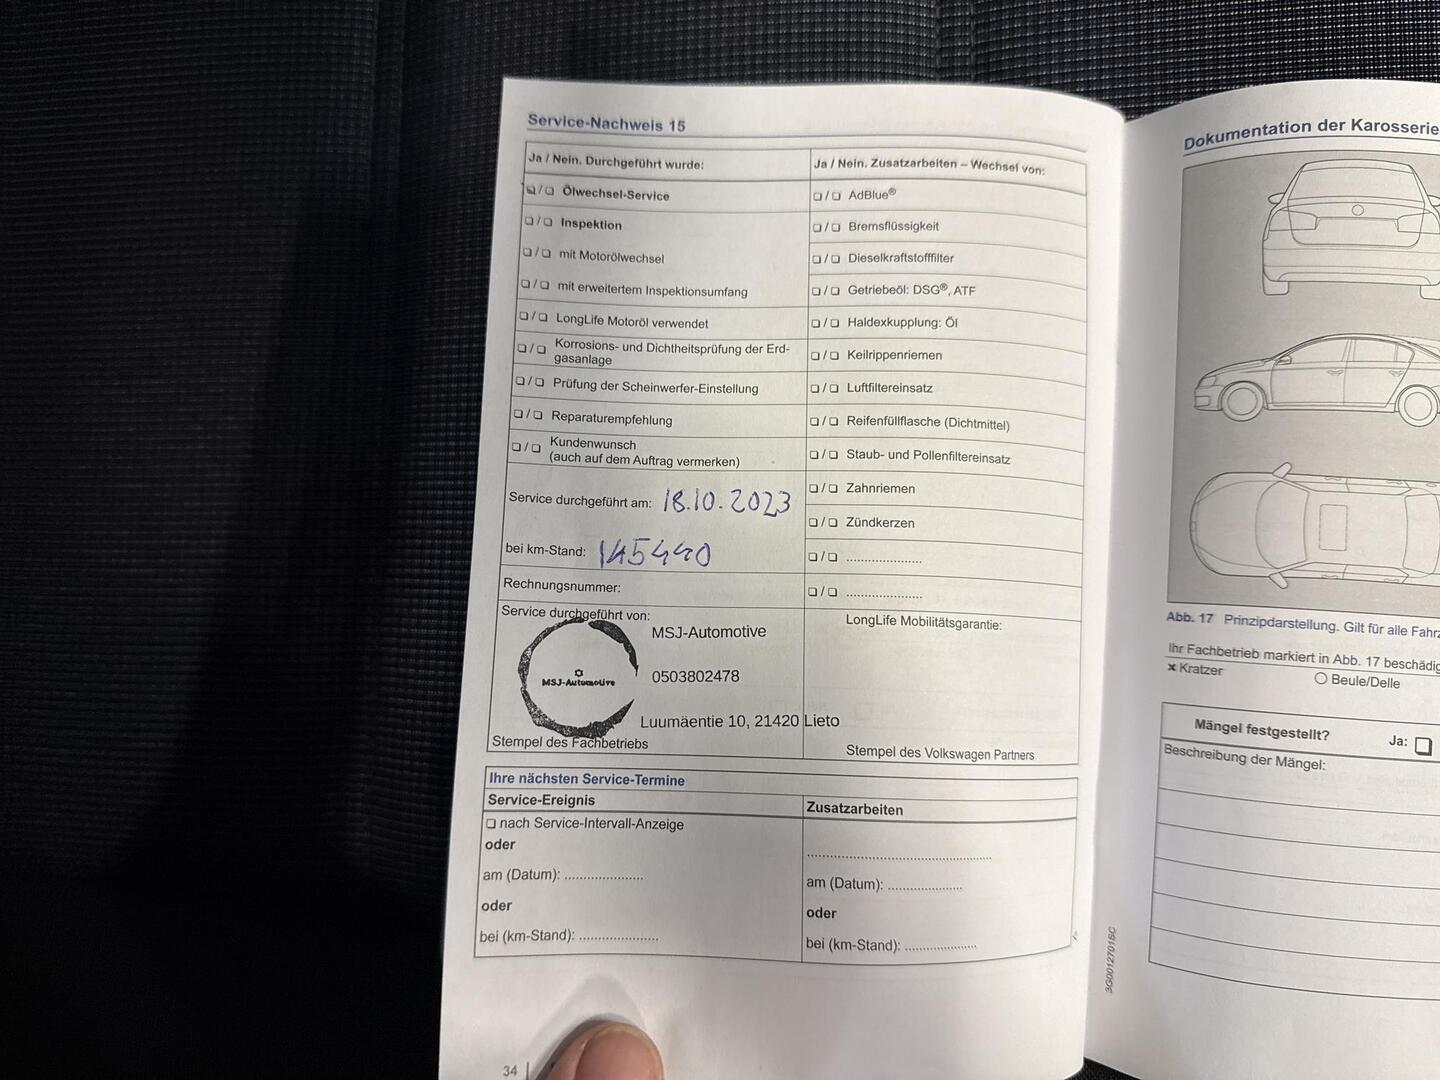 Service-Nachweis 15
Ja / Nein. Durchgeführt wurde:
❏ / ❏ Ölwechsel-Service
❏ / ❏ Inspektion
❏ / ❏ mit Motorölwechsel
❏ / ❏ mit erweitertem Inspektionsumfang
❏ / ❏ LongLife Motoröl verwendet
❏ / ❏ Korrosions- und Dichtheitsprüfung der Erd-
gasanlage
❏ / ❏ Prüfung der Scheinwerfer-Einstellung
❏ / ❏ Reparaturempfehlung
❏ / ❏ Kundenwunsch
(auch auf dem Auftrag vermerken)
Service durchgeführt am: 18.10.2023
bei km-Stand: 145440
Rechnungsnummer:
Service durchgeführt von:
MSJ-Automotive
MSJ-Automotive
0503802478
Luumäentie 10, 21420 Lieto
Stempel des Fachbetriebs
Ja / Nein. Zusatzarbeiten – Wechsel von:
❏ / ❏ AdBlue®
❏ / ❏ Bremsflüssigkeit
❏ / ❏ Dieselkraftstofffilter
❏ / ❏ Getriebeöl: DSG®, ATF
❏ / ❏ Haldexkupplung: Öl
❏ / ❏ Keilrippenriemen
❏ / ❏ Luftfiltereinsatz
❏ / ❏ Reifenfüllflasche (Dichtmittel)
❏ / ❏ Staub- und Pollenfiltereinsatz
❏ / ❏ Zahnriemen
❏ / ❏ Zündkerzen
❏ / ❏ ......................
❏ / ❏ ......................
LongLife Mobilitätsgarantie:
Stempel des Volkswagen Partners
Ihre nächsten Service-Termine
Service-Ereignis
❏ nach Service-Intervall-Anzeige
oder
am (Datum): ......................
oder
bei (km-Stand): ......................
Zusatzarbeiten
......................................................
am (Datum): ......................
oder
bei (km-Stand): ......................
34
3G0012701SC
Dokumentation der Karosserie
Abb. 17 Prinzipdarstellung. Gilt für alle Fahrz
Ihr Fachbetrieb markiert in Abb. 17 beschädig
× Kratzer
○ Beule/Delle
Mängel festgestellt?
Ja: ❏
Beschreibung der Mängel: